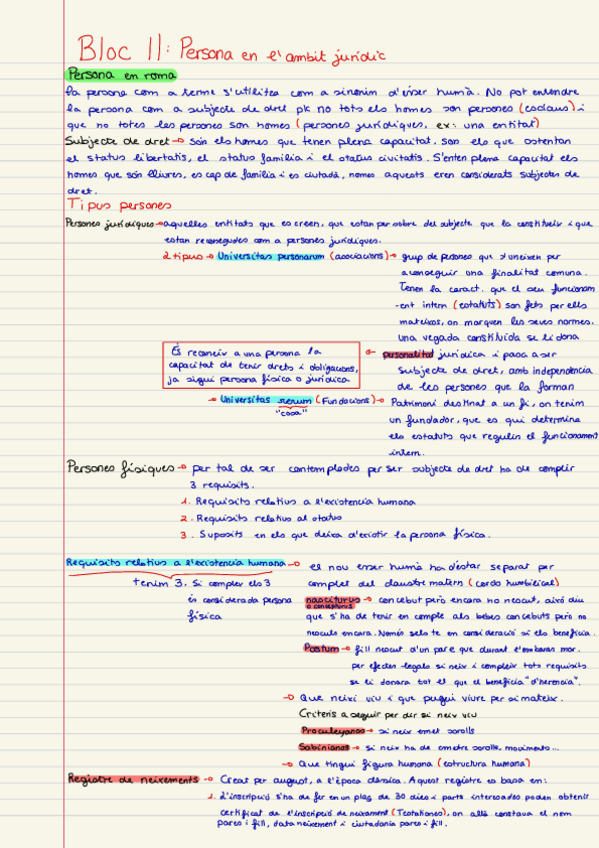 Bloc II: Persona en l'àmbit jurídic
Persona en roma
La persona com a terme s'utilitza com a sinonim d'ésser humà. No pot entendre
la persona com a subjecte de dret pk no tots els homes son persones (esclaus) i
que no totes les persones son homes (persones jurídiques, ex: una entitat)
Subjecte de dret → són els homes que tenen plena capacitat, son els que ostenten
el status libertatis, el status familia i el status civitatis. S'enten plena capacitat els
homes que són lliures, es cap de familia i es ciutadà, nomes aquests eren considerats subjectes de
dret.
Tipus persones
Persones jurídiques → aquelles entitats que es creen, que estan per sobre del subjecte que la constitueix i que
estan reconegudes com a persones juridiques.
2 tipus → Universitas personarum (associacions) → grup de persones que s'uneixen per
aconseguir una finalitat comuna.
Tenen la caract. que el seu funcionam
-ent intern (estatuts) son fets per ells
mateixos, on marquen les seves normes.
una vegada constituida se li dona
personalitat jurídica i passa a ser
subjecte de dret, amb independencia
de les persones que la formen
És reconeix a una persona la
capacitat de tenir drets i obligacions,
ja sigui persona física o juridica
→ Universitas rerum (Fundacions) → Patrimoni destinat a un fi, on tenim
"cosa"
un fundador, que es qui determina
els estatuts que regulin el funcionament
intern.
Persones físiques → per tal de ser contemplades per ser subjecte de dret ha de complir
3 requisits.
1. Requisits relatius a l'existencia humana
2. Requisits relatius al status
3. Suposits en els que deixa d'existir la persona física.
Requisits relatius a l'existencia humana → el nou esser humà ha d'estar separat per
complet del claustre matern (cordo humbilical)
tenim 3. Si compleix els 3
es considerada persona
física
nasciturus → concebut però encara no nascut, això diu
o concepturus
que s'ha de tenir en compte als bebes concebuts però no
nascuts encara. Només sels te en consideració si els beneficia.
Postum → fill nascut d'un pare que durant l'embaras mor.
per efectes legals si neix i compleix tots requisits
se li donara tot el que el beneficia "d'herencia".
→ Que neixi viu i que pugui viure per si mateix.
Criteris a seguir per dir si neix viu
Proculeyanos → si neix emet sorolls
Sabinianos → si neix ha de emetre sorolls, movimento...
→ Que tingui figura humana (estructura humana)
Registre de neixements → Creat per august, a l'època clàsica. Aquest registre es basa en:
1. d'inscripció s'ha de fer en un plaç de 30 dies i parts interesades poden obtenir
certificat de l'inscripció de neixament (Testationes), on allà constava el nom
pares i fill, data neixement i ciutadania pares i fill.